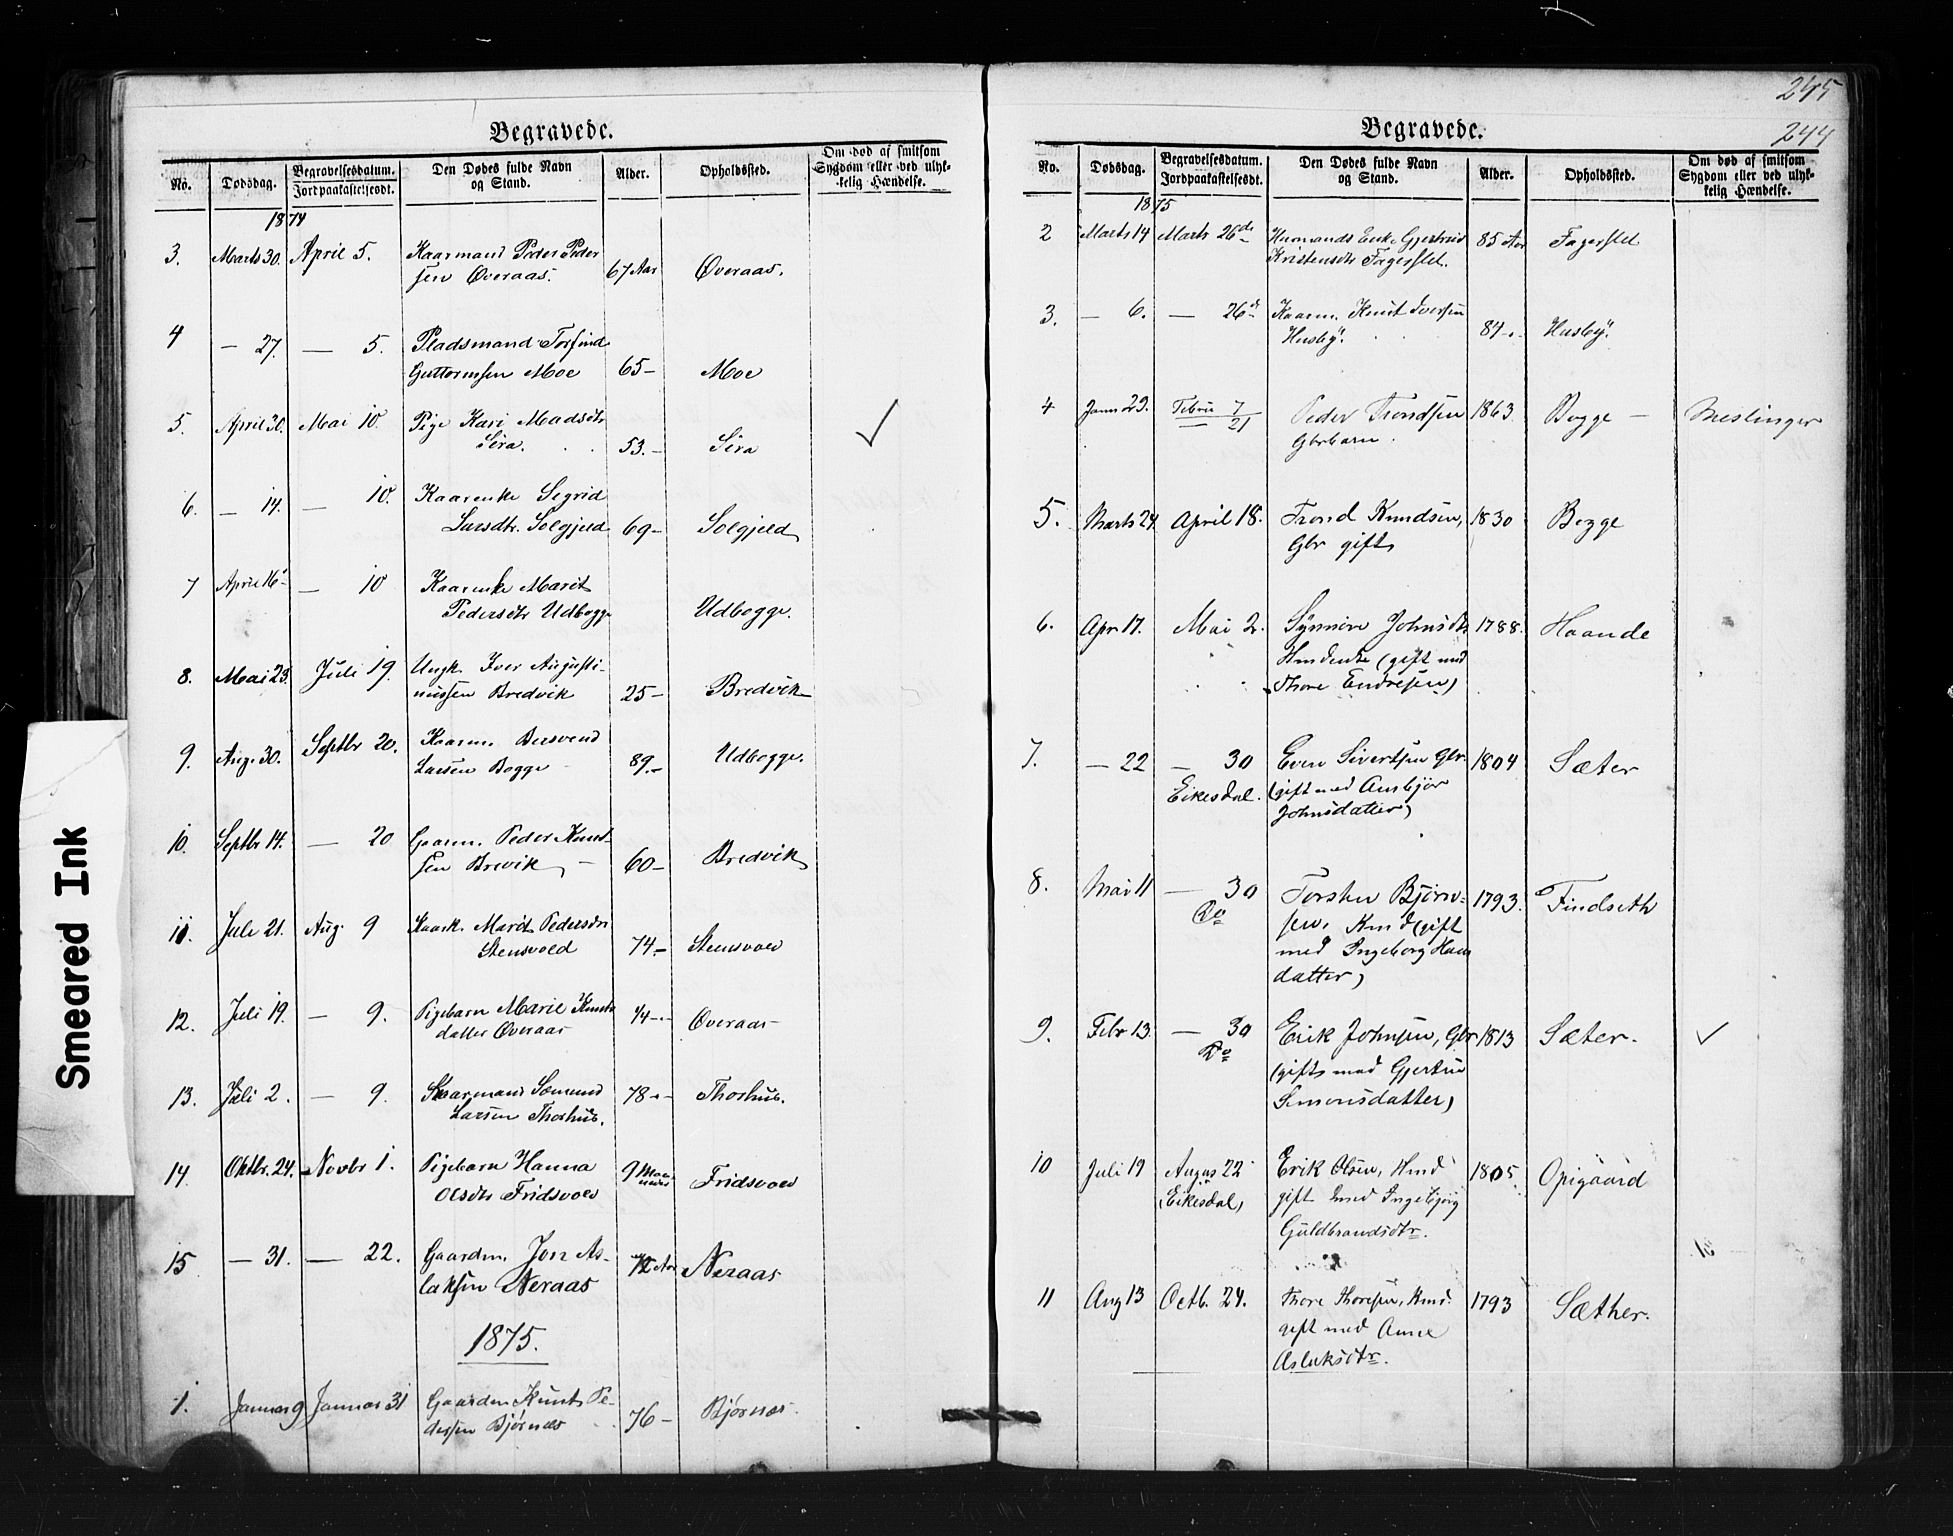 Begravede.
No. Dødsdag. Begravelsesdatum. Jordpaakastelsesdt. Den Dødes fulde Navn og Stand. Alder. Opholdssted. Om død af smitsom Sygdom eller ved ulykkelig Hændelse.
1874
3. Marts 30. April 5. Kaarmand Peder Peder
sen Øveraas. 67 Aar Øveraas.
4 — 27. — 5. Pladsmand Torfind
Guttormsen Moe 65— Moe
5. April 30. Mai 10. Pige Kari Madsdtr
Sira. 53.— Sira
6. — 14. — 10. Kaarenke Segrid
Larsdtr. Solgjeld 69— Solgjeld
7 April 16 — 10 Kaarenke Marit
Pedersdtr Udbogge Udbogge.
8. Mai 23. Juli 19. Ungk. Iver Augusti-
nussen Bredvik 25— Bredvik
9. Aug. 30. Septbr 20. Kaarm. Bersvend
Larsen Bogge 89.— Udbogge.
10. Septbr 14. — 20 Gaarm. Peder Knud-
sen Brevik 60— Bredvik
11. Juli 21. Aug. 9 Kaark. Marit Pedersdtr
Stensvold 74— Stensvold
12. Juli 19. — 9. Pigebarn Marie Knuts
datter Øveraas Øveraas
13. Juli 2. — 9. Kaarmand Sæmund
Larsen Thorhus. 78 — Thorhus.
14. Oktbr. 24. Novbr 1. Pigebarn Hanna
Olsdtr Fridsvold 9 Maaneder Fridsvold
15 — 31. — 22. Gaardm. Jon As-
laksen Neraas 72 Aar Neraas
1875.
1. Januar 9 Januar 31 Gaardm Knut Pe-
dersen Bjørnes 76— Bjørnes.
245
244
Begravede.
No. Dødsdag. Begravelsesdatum. Jordpaakastelsesdt. Den Dødes fulde Navn og Stand. Alder. Opholdssted. Om død af smitsom Sygdom eller ved ulykkelig Hændelse.
1875
2 Marts 14 Marts 26de Husmands Enke Gjertrud
Kristensdtr Fagerslet. 85 Aar Fagerslet
3. — 6. — 26d Kaarm. Knut Iversen
Husby. 84 — Husby.
4 Janu 23. Februar 7/21 Peder Trondsen
Gbrbarn. 1863 Bogge — Meslinger
5. Marts 24. April 18. Trond Knudsen,
Gbr gift 1830 Bogge
6. Apr. 17. Mai 2. Synnøve Johnsdtr
Hmdenke (gift med
Thore Endresen) 1788. Haande
7. — 22 — 30
Eikesdal. Even Sivertsen Gbr.
(gift med Ansbjør
Johnsdatter) 1804 Sæter
8. Mai 11 — 30
Do Torsten Bjørn-
sen. Kmd (gift
med Ingeborg Hans
datter) 1793. Findseth
9. Febr 13. — 30
Do Erik Johnsen, Gbr
(gift med Gjertru
Simonsdatter) 1813 Sæter.
10 Juli 19 August 22
(Eikesdal) Erik Olsen, Hmd
gift med Ingebjørg
Guldbrandsdtr. 1805. Opigaard
11 Aug 13 Octb. 24. Thore Thoresen, Hmd.
gift med Anne
Aslaksdtr. 1793 Sæther.
Smeared Ink